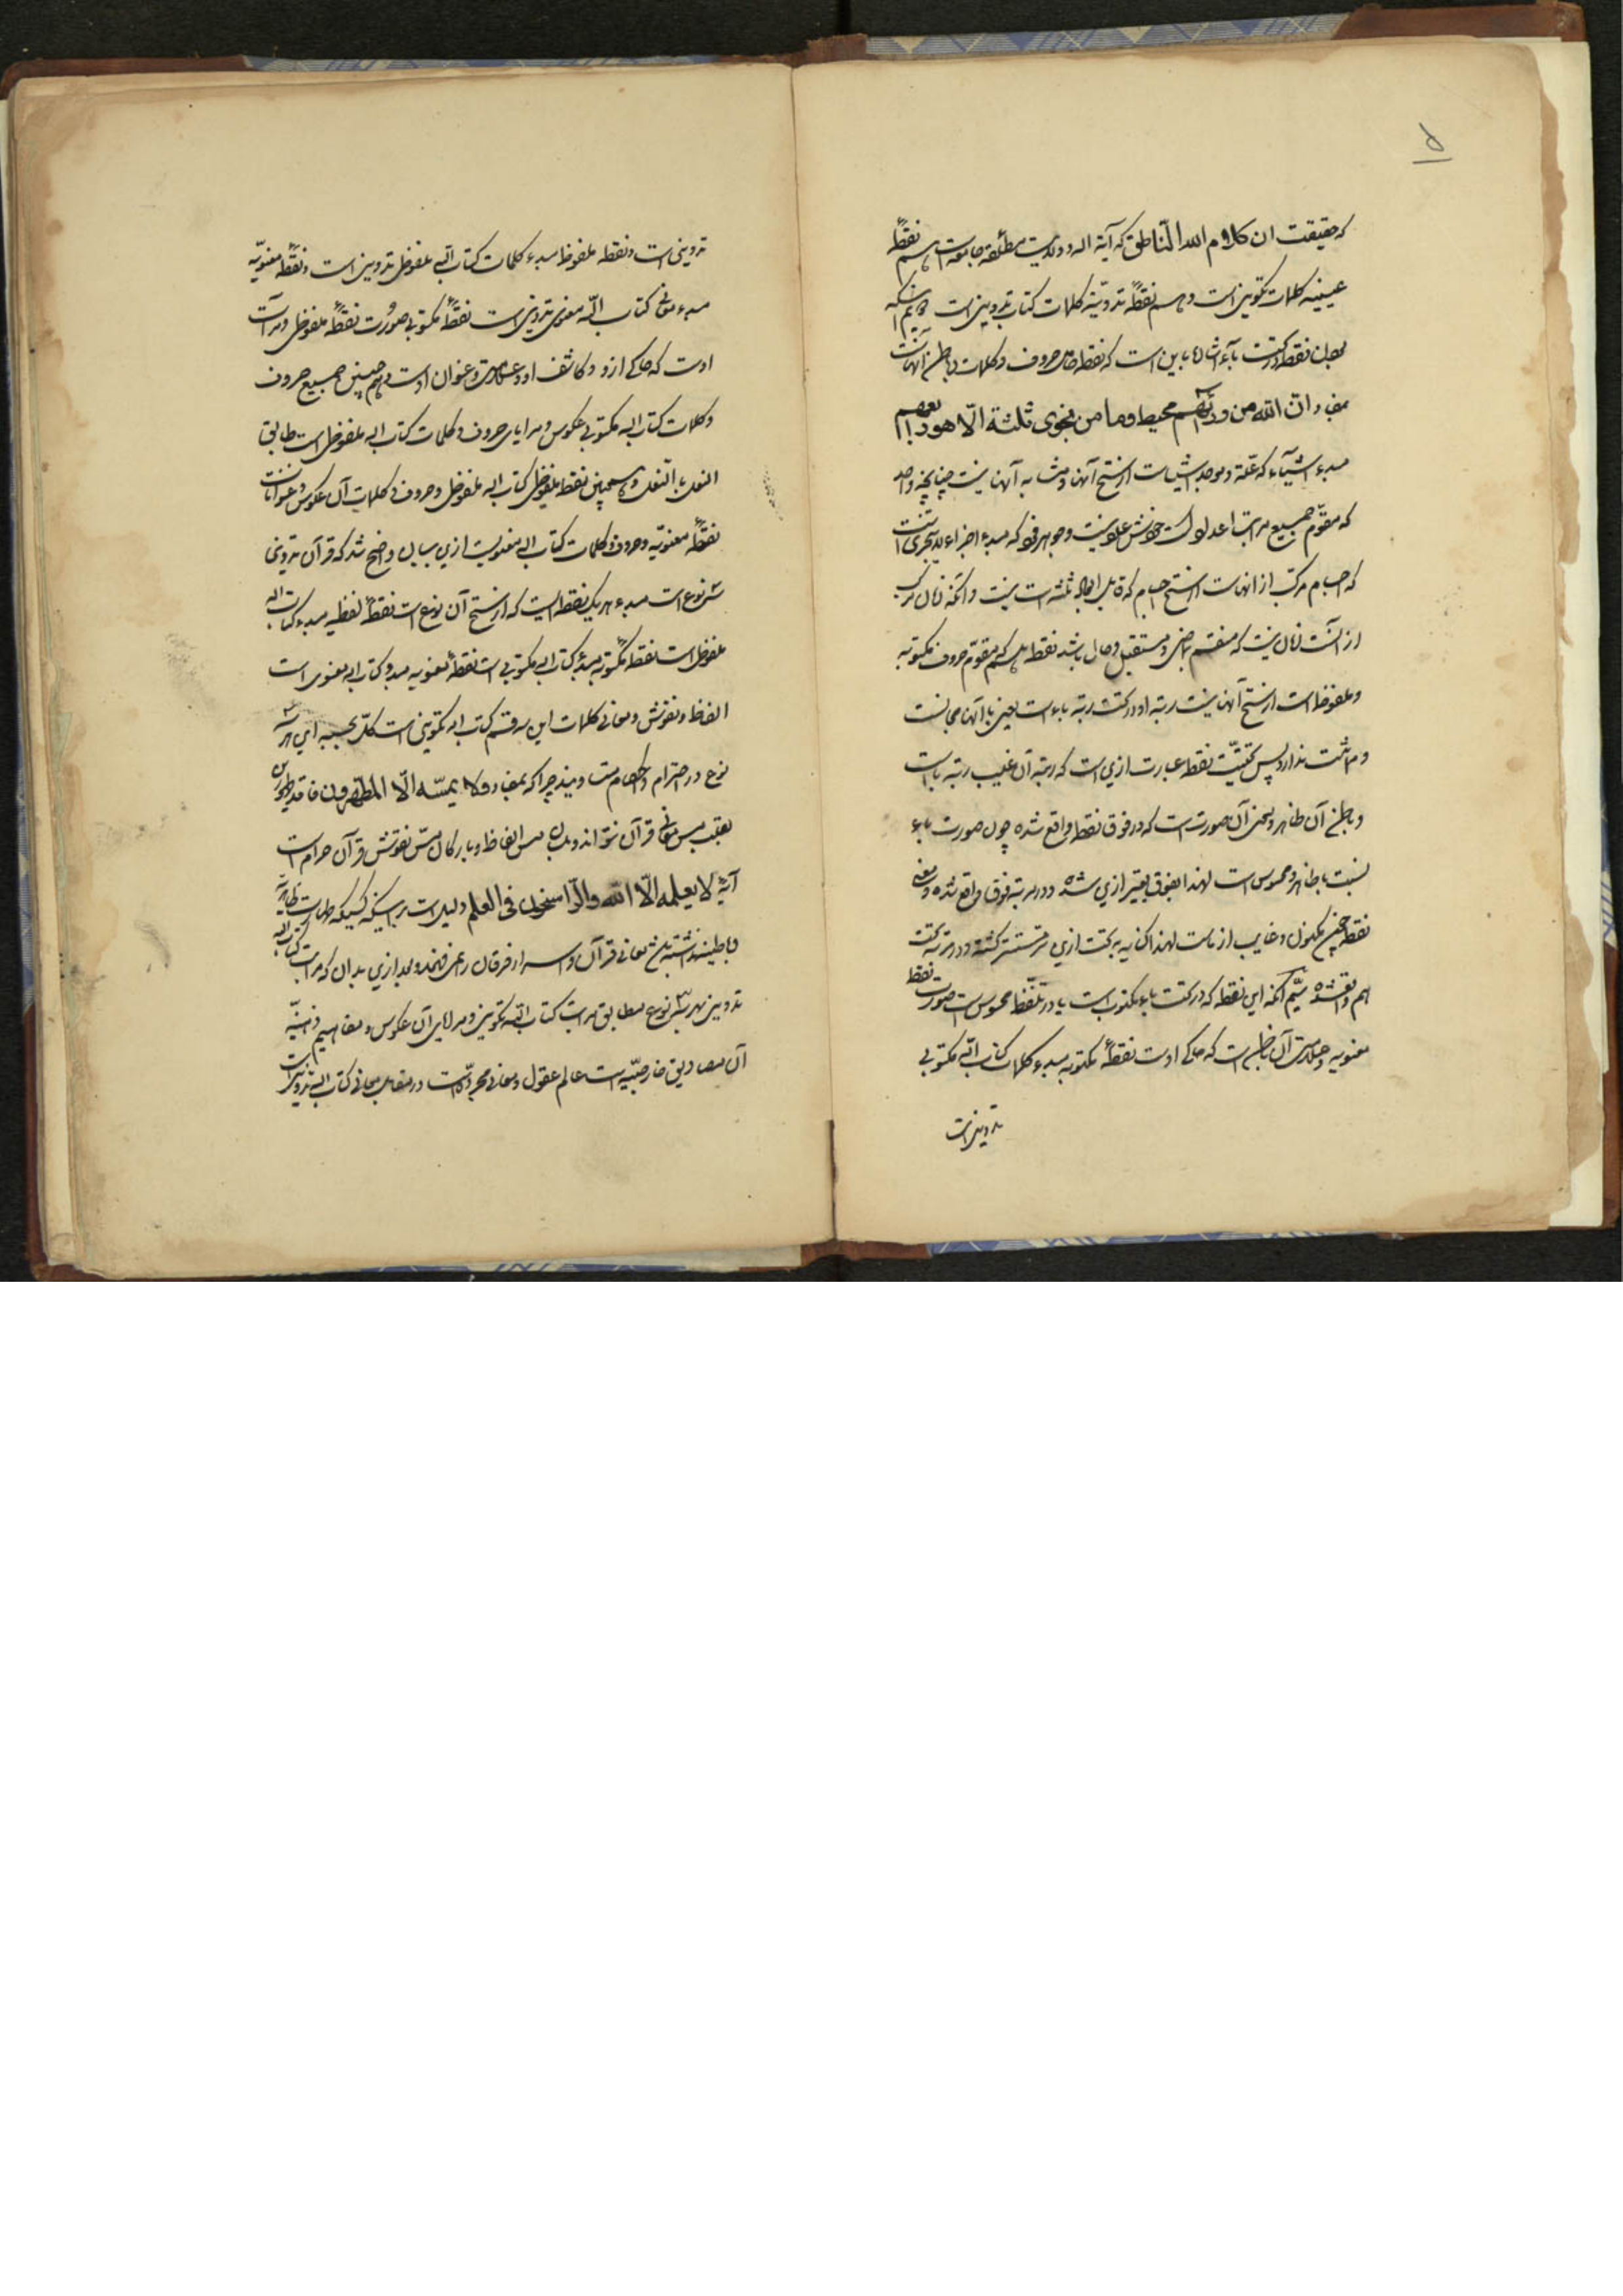 ۵
که حقیقت ان کلام الله الناطق که آیة اله و ولایت مطلقه جامعه است هم نقطهٔ
عینیه کلمات تکوینی است و هم نقطهٔ تدوینیه کلمات کتاب تدوینی است دویم آنکه
بودن نقطه در تحت باء اشاره باین است که نقطه حروف و کلمات و باطن آنهاست
بمفاد ان الله من ورائهم محیط و ما من نجوی ثلثة الا هو رابعهم
مبدء اشیآء که علة و موجد اشیاست از سنخ آنها و مشابه آنها نیست چنانچه واحد
که مقوم جمیع مراتب اعداد است خودش عدد نیست و جوهر فرد که مبدء اجزاء لایتجزی است
که اجسام مرکب از انهاست از سنخ اجسام که قابل ابعاد ثلثه است نیست و آنکه زمان مرکب
از آنست زمان نیست که منقسم بماضی و مستقبل و حال باشد نقطه هم که مقوم حروف مکتوبه
و ملفوظه است از سنخ آنها نیست رتبه او در تحت رتبه باء است یعنی با آنها مجانست
و مماثلت ندارد پس تحتیت نقطه عبارت ازین است که رتبه آن غیب رتبه باست
و باطن آن ظاهر و معنی آن صورت است که در فوق نقطه واقع شده چون صورت باء
نسبت بما ظاهر و محسوس است لهذا بفوق تعبیر ازین شده و در مرتبه فوق واقع شده و معنی
نقطه چنین مکنون و غایب از ماست لهذا کنایه به تحت ازین سر مستتر گشته و در مرتبه تحت
هم واقع شده سیم آنکه این نقطه که در تحت باء مکتوب است یا در تلفظ محسوس است صورت نقطه
معنویه و آن باطن است که حاکی اوست نقطهٔ مکتوبه مبدء کلمات کتاب الله مکتوبی
تدوینی است
تدوینی است و نقطه ملفوظ مبدء کلمات کتاب الهی ملفوظی تدوینی است و نقطهٔ معنویه
مبدء معانی کتاب اله معنوی تدوینی است نقطهٔ مکتوبی صورت نقطهٔ ملفوظی و مرآت
اوست که حاکی ازو و کاشف او و عنوان اوست و هم چنین جمیع حروف
و کلمات کتاب اله مکتوبی عکوس و مرایای حروف و کلمات کتاب اله ملفوظی است طابق
النعل بالنعل و همچنین نقطه ملفوظی کتاب اله ملفوظی و حروف و کلمات آن عکوس و عنوانات
نقطهٔ معنویه و حروف و کلمات کتاب اله معنویست ازین بیان واضح شد که قرآن تدوینی
سه نوع است مبدء هر یک نقطه ایست که از سنخ آن نوع است نقطهٔ لفظیه مبدء کتاب اله
ملفوظی است نقطهٔ مکتوبه مبدء کتاب اله مکتوبی است نقطهٔ معنویه مبدء کتاب اله معنوی است
الفاظ و نقوش و معانی کلمات این سه قسم کتاب اله تکوینی است کل بحسبه این هر سه
نوع در احترام و احکام مساویند چرا که بمفاد و لا یمسه الا المطهرون فاقد طهارت
بقلب مس معانی قرآن نتواند و بلسان مس الفاظ و بارکان مس نقوش قرآن حرام است
آیهٔ لا یعلمه الا الله و الراسخون فی العلم دلیل است بر اینکه کسیکه طهارت ظاهریه
و باطنیه نداشته باشد معانی قرآن و اسرار فرقان را نمی فهمد و بعد ازین بدان که مراتب کتاب اله
تدوینی بهر سه نوع مطابق مراتب کتاب الله تکوینی و مرایای آن عکوس و مفاهیم ذهنیه
آن مصادیق خارجیه است عالم عقول و معانی مجرده است در مقابل معانی کتاب اله تدوینی است